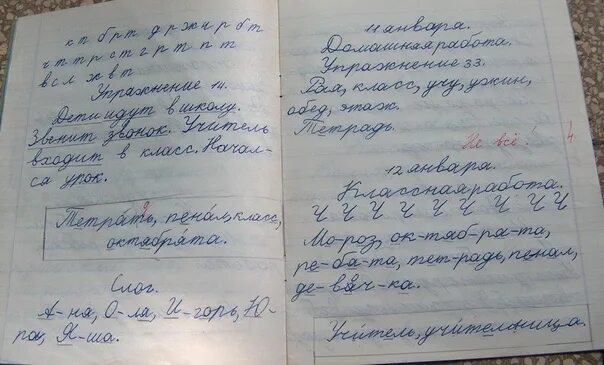 к п б р т д р ж н р б т
ч т т р с т г р т п т
в с л ж в т
Упражнение 14.
Дети идут в школу.
Звенит звонок. Учитель
входит в класс. Начал-
са урок.
Тетрать, пенал, класс,
д
октабрата.
Слог.
А-на, О-ла, И-горь, Ю-
ра, Я-ша.
11 анвара.
Домашнаа работа.
Упражнение 33.
Рая, класс, учу, ужин,
обед, этаж.
Тетрадь.
Не всё!
12 января.
Классная работа.
Ч Ч Ч Ч Ч Ч Ч Ч Ч
Мо-роз, ок-таб-ра-та,
ре-ба-та, тет-радь, пенал,
де-вач-ка.
Учитель, учительница.